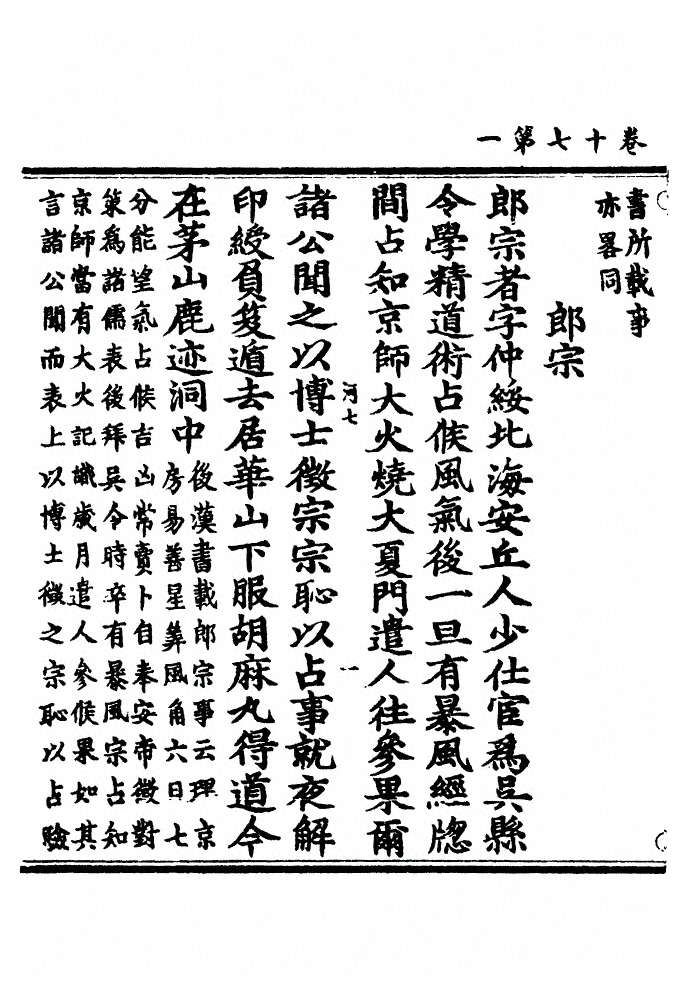 卷十七第一
書所載事
亦畧同
郎宗
郎宗者字仲綏北海安丘人少仕官爲吳縣
令學精道術占候風氣後一旦有暴風經牕
間占知京師大火燒大夏門遣人往參果爾
河七 一
諸公聞之以博士徵宗宗恥以占事就夜解
印綬負笈遁去居華山下服胡麻丸得道今
在茅山鹿迹洞中
後漢書載郎宗事云理京
房易善星筭風角六日七
分能望氣占候吉凶常賣卜自奉安帝徵對
策爲諸儒表後拜吳令時卒有暴風宗占知
京師當有大火記識歲月遣人參候果如其
言諸公聞而表上以博士徵之宗恥以占驗